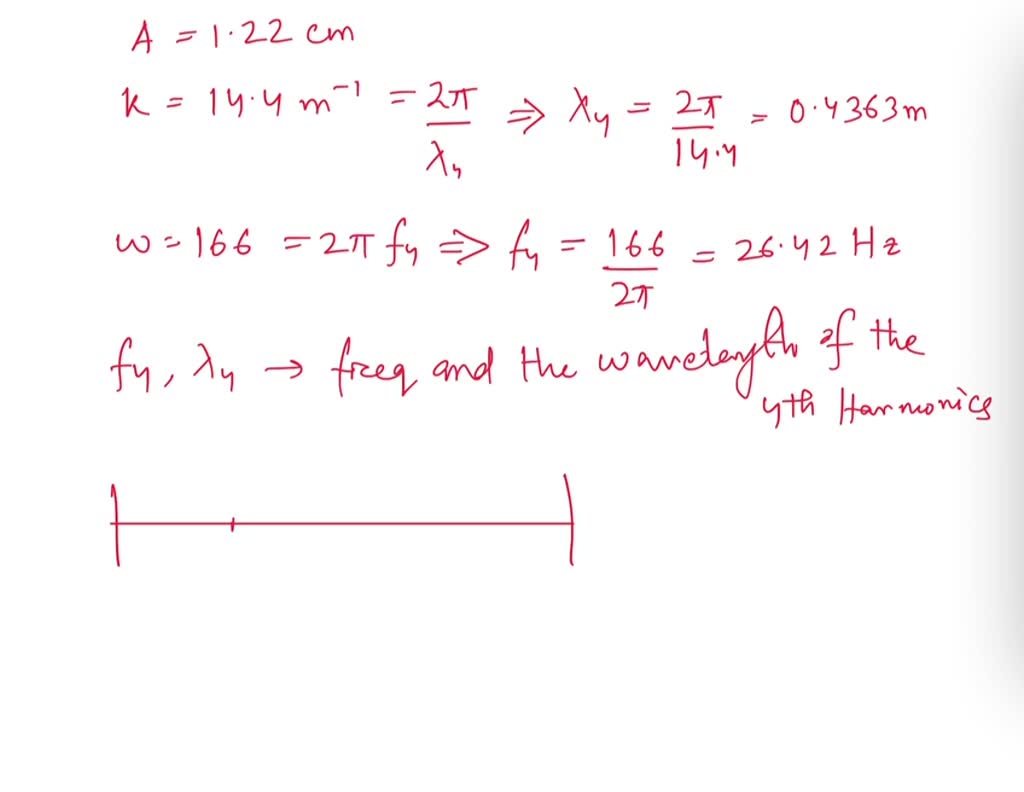 A = 1.22 cm
k = 14.4 m⁻¹ = 2π/λ₄ ⇒ λ₄ = 2π/14.4 = 0.4363m
ω = 166 = 2π f₄ ⇒ f₄ = 166/2π = 26.42 Hz
f₄, λ₄ → freq and the wavelength of the
4th Harmonics